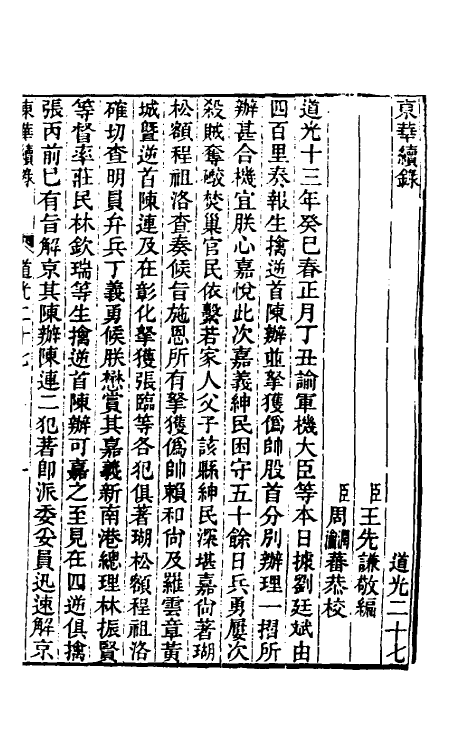 東華續錄 道光二十七
臣王先謙敬編
臣周潤蕃周瀹蕃恭校
道光十三年癸巳春正月丁丑諭軍機大臣等本日據劉廷斌由
四百里奏報生擒逆首陳辦並拏獲僞帥股首分別辦理一摺所
辦甚合機宜朕心嘉悅此次嘉義紳民困守五十餘日兵勇屢次
殺賊奪礮焚巢官民依繫若家人父子該縣紳民深堪嘉尙著瑚
松額程祖洛查奏候旨施恩所有拏獲僞帥賴和尙及羅雲章黃
城曁逆首陳連及在彰化拏獲張臨等各犯俱著瑚松額程祖洛
確切查明員弁兵丁義勇候朕懋賞其嘉義新南港總理林振賢
等督率莊民林欽瑞等生擒逆首陳辦可嘉之至見在四逆俱擒
張丙前已有旨解京其陳辦陳連二犯著卽派委妥員迅速解京
東華續錄 道光二十七 一